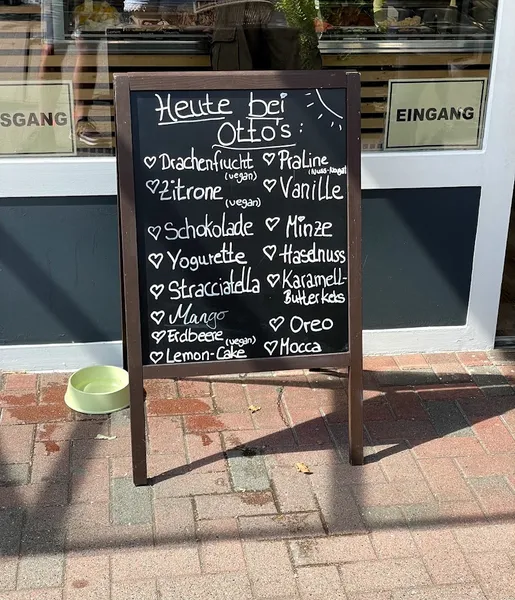 SGANG
EINGANG
Heute bei
Otto's:
♡ Drachenfrucht
(vegan)
♡ Zitrone
(vegan)
♡ Schokolade
♡ Yogurette
♡ Stracciatella
♡ Mango
♡ Erdbeere (vegan)
♡ Lemon-Cake
♡ Praline
(Nuss-Nugat)
♡ Vanille
♡ Minze
♡ Haselnuss
♡ Karamell-
Butterkeks
♡ Oreo
♡ Mocca